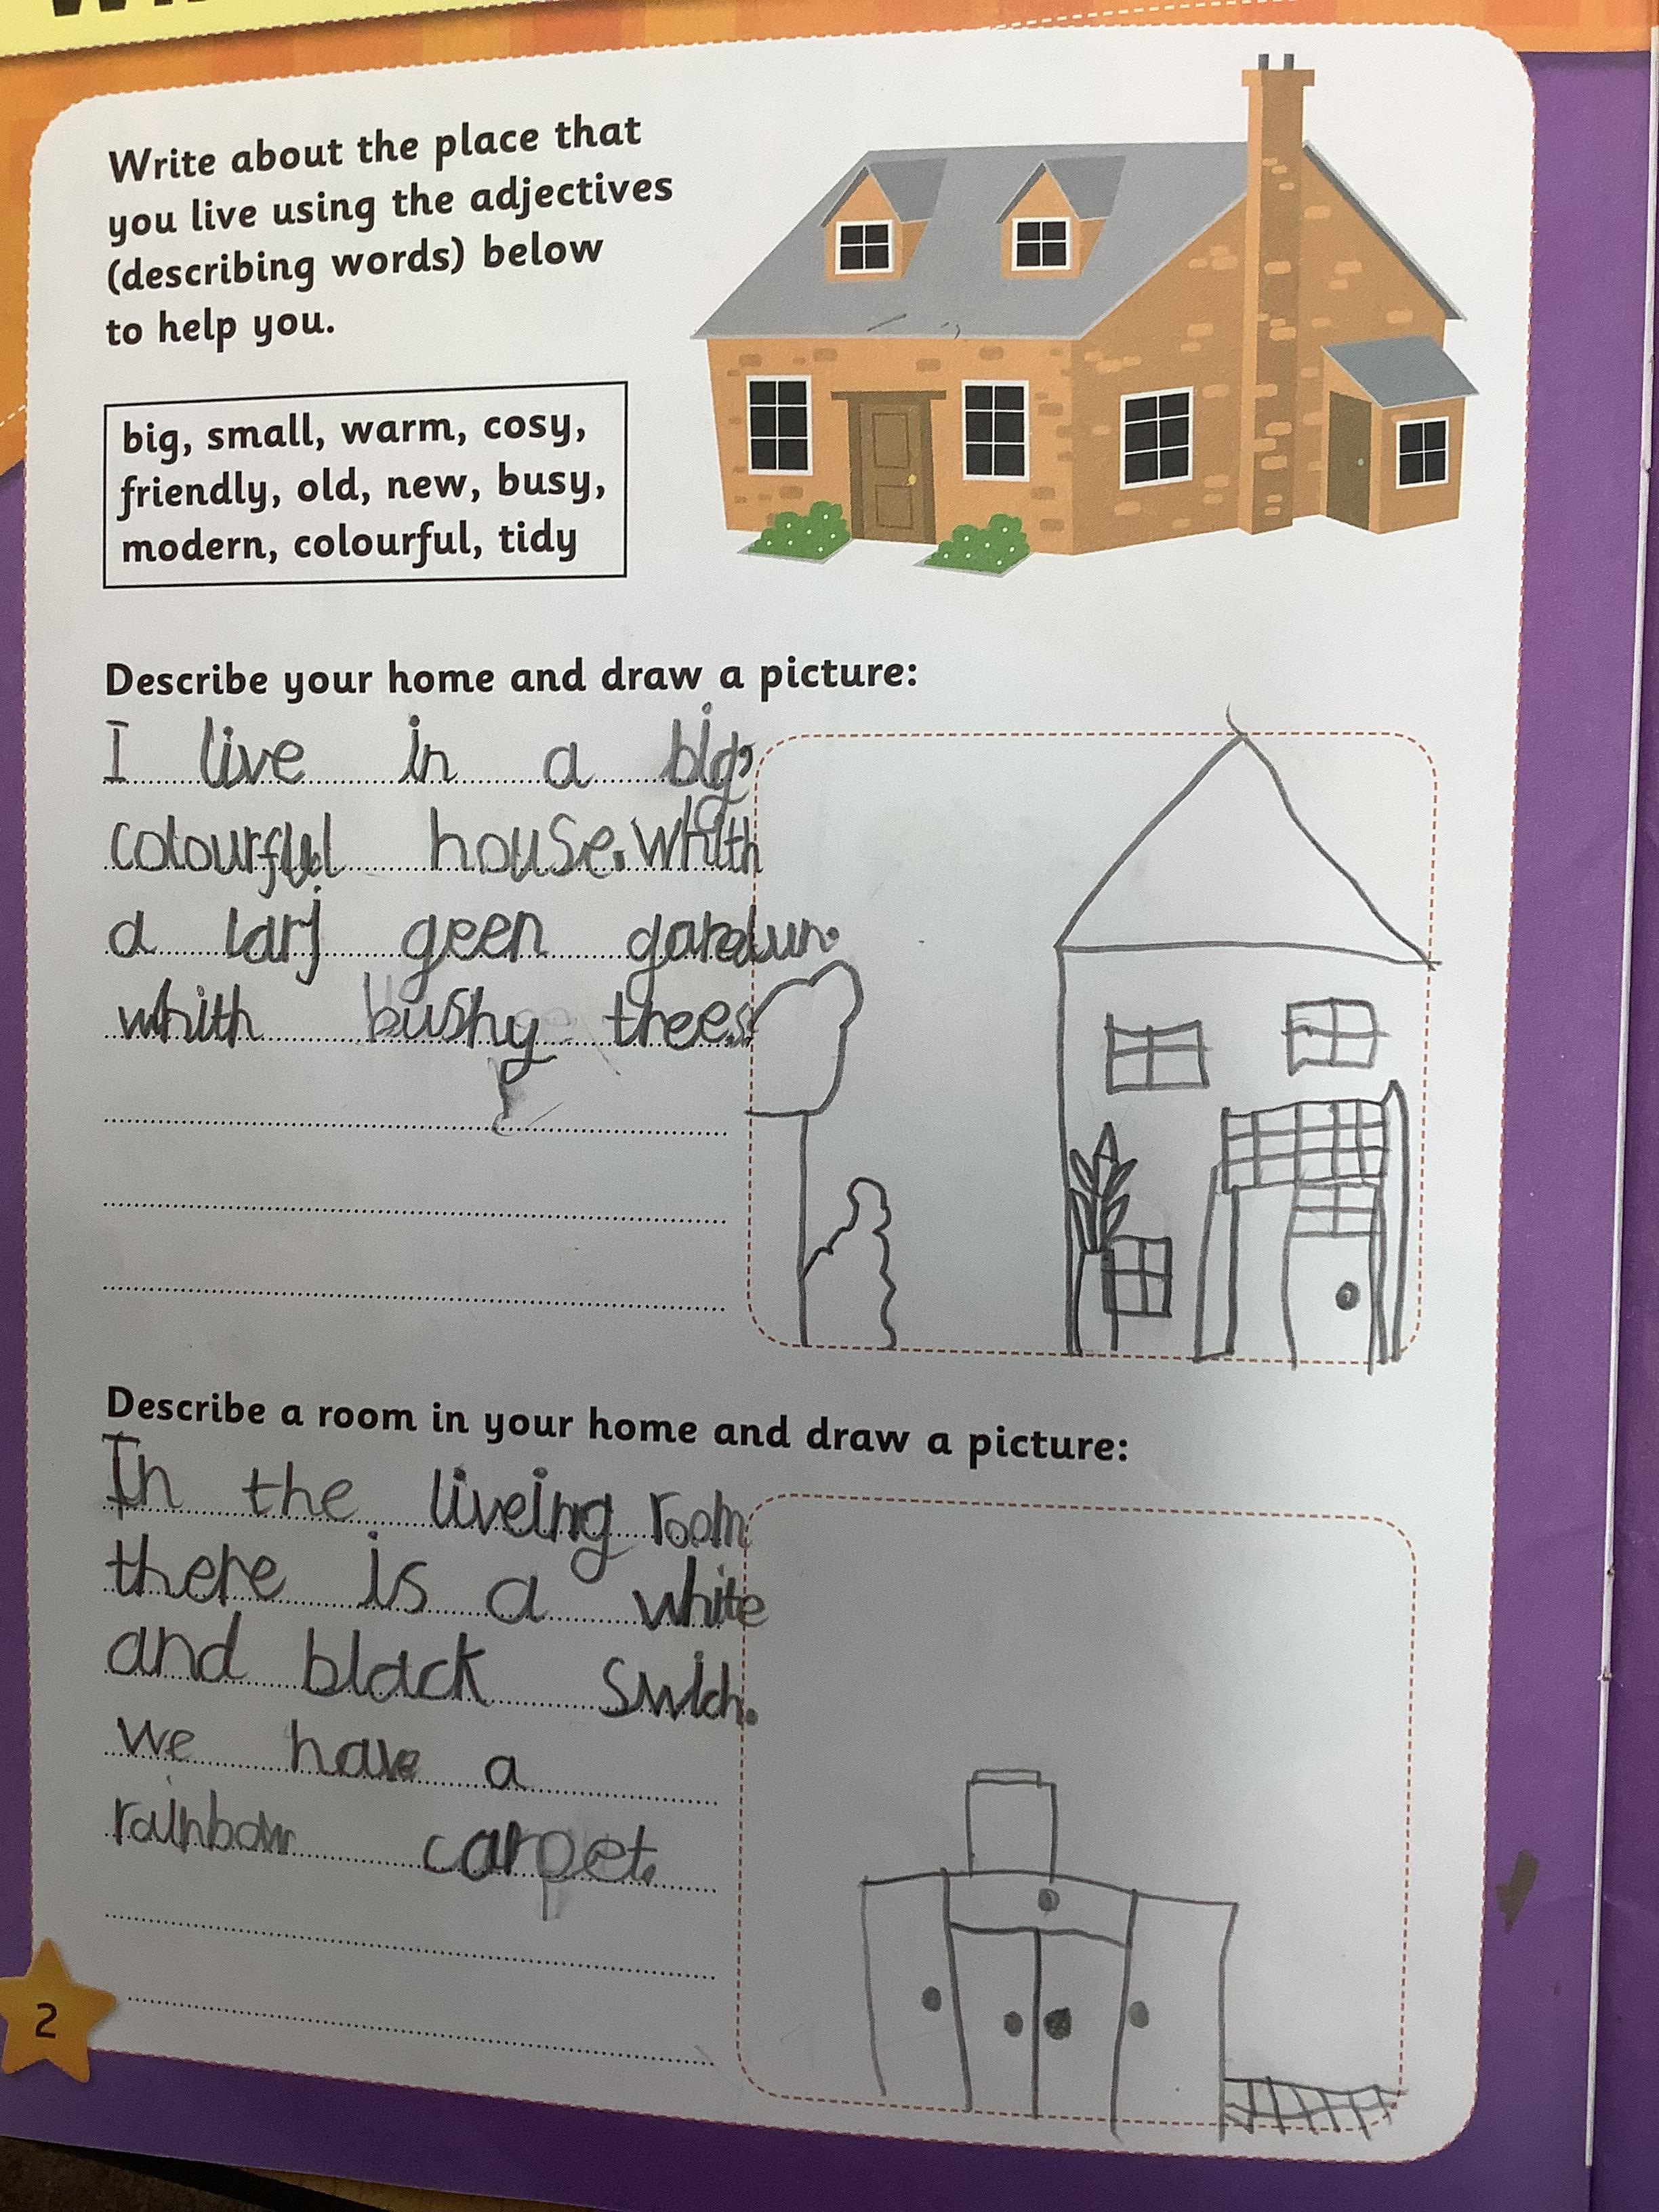 Write about the place that
you live using the adjectives
(describing words) below
to help you.
big, small, warm, cosy,
friendly, old, new, busy,
modern, colourful, tidy
Describe your home and draw a picture:
I live in a big,
colourful house. whith
a larj geen gardun.
whith bushy threes.
Describe a room in your home and draw a picture:
In the liveing room
there is a white
and black swich.
we have a
rainbow carpet.
2